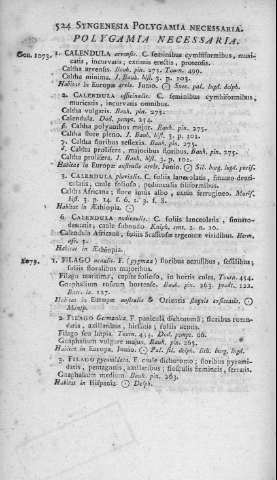 524 SYNGENESIA POLYGAMIA NECESSARIA.
POLYGAMIA NECESSARIA.
Gen. 1073. 1. CALENDULA arvensis. C. seminibus cymbiformibus, muri-
catis, incurvatis; extimis erectis, protensis.
Caltha arvensis. Bauh. pin. 275. Tourn. 499.
Caltha minima. J. Bauh. hist. 3. p. 103.
Habitat in Europæ arvis. Junio. ☉
2. CALENDULA officinalis. C. seminibus cymbiformibus,
muricatis, incurvatis omnibus.
Caltha vulgaris. Bauh. pin. 275.
Calendula. Dod. pempt. 254.
Caltha polyanthos major. Bauh. pin. 275.
Caltha flore pleno. J. Bauh. hist. 3. p. 101.
Caltha floribus reflexis. Bauh. pin. 275.
Caltha prolifera, majoribus floribus. Bauh. pin. 275.
Caltha prolifera. J. Bauh. hist. 3. p. 102.
Habitat in Europæ australis arvis, Junio. ☉
3. CALENDULA pluvialis. C. foliis lanceolatis, sinuato-denti-
culatis; caule folioso, pedunculis filiformibus.
Caltha Africana; flore intus albo, extus ferrugineo. Moris.
hist. 3. p. 14. s. 6. t. 3. f. 8.
Habitat in Æthiopia. ☉
6. CALENDULA C. foliis lanceolatis,
dentatis; caule subnudo.
Calendula Africana; foliis virentibus. Herm.
Habitat in Æthiopia.
1. FILAGO acaulis. F. (pygmæa) floribus acaulibus, sessilibus;
foliis floralibus majoribus.
Filago maritima, capite folioso. Tourn. 454.
Gnaphalium roseum hortense. Bauh. pin. 263. prodr. 122.
Habitat in Europæ australis & Orientis
2. FILAGO Germanica. F. panicula dichotoma; floribus rotun-
datis, axillaribus, hirsutis; foliis acutis.
Filago seu Impia. Tourn. 454. Dod. pempt. 66.
Gnaphalium vulgare majus. Bauh. pin. 263.
Habitat in Europa. Junio. ☉
3. FILAGO pyramidata. F. caule dichotomo; floribus pyrami-
datis, pentagonis, axillaribus; flosculis fœmineis, serratis.
Gnaphalium medium. Bauh. pin. 263.
Habitat in Hispania. ☉ Delph.